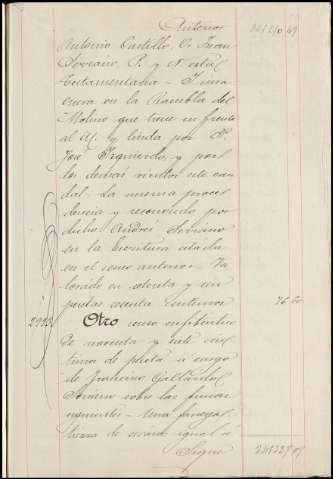 Anterior 241210 69
Antonio Castillo, D. Juan
Serrano, P. y N. esta
testamentaria - Y una
cueva en la Rambla del
Molino que tiene en frente
al N. y linda por D.
José Izquierdo, y por
los demás vientos este cau
dal. La misma proce
dencia y reconocido por
dicho Andrés Serrano
en la escritura citada
en el censo anterior. Va
lorado en setenta y seis
pesetas sesenta centimos 76 60
Otro censo enfitéutico
de noventa y siete cén
timos de plata a cargo
de Francisco Gallardo
Serrano sobre las fincas
siguientes - Una fanega
tierra de secano igual á
Sigue